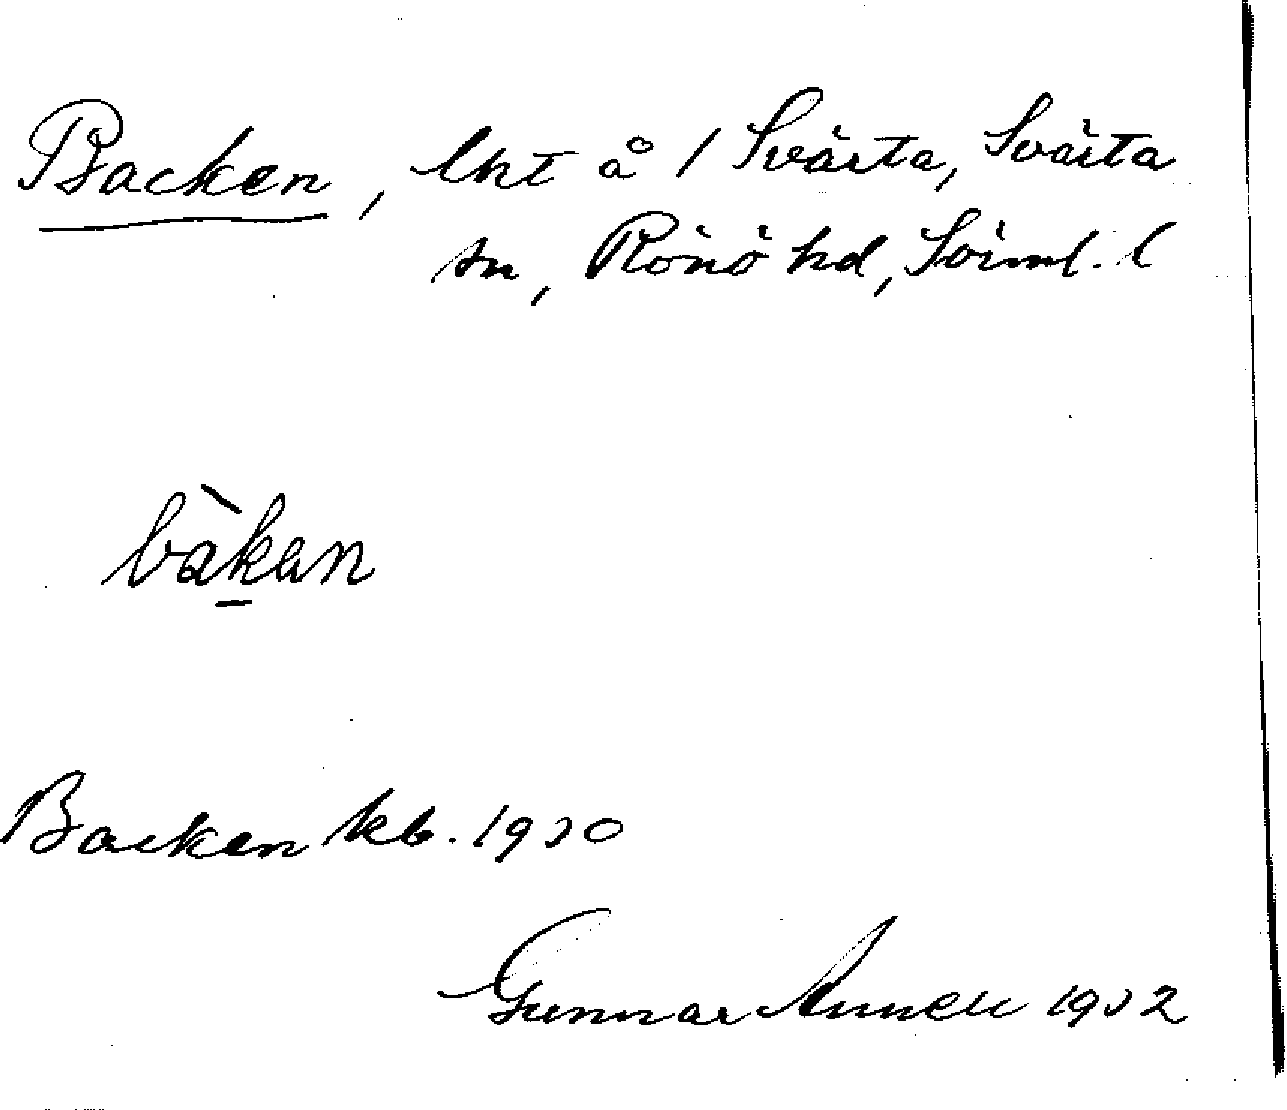 Backen, lht å 1 Svärta, Svärta
sn, Rönö hd, Sörml. l
bàkan
Backen kb. 1930
Gunnar 1932